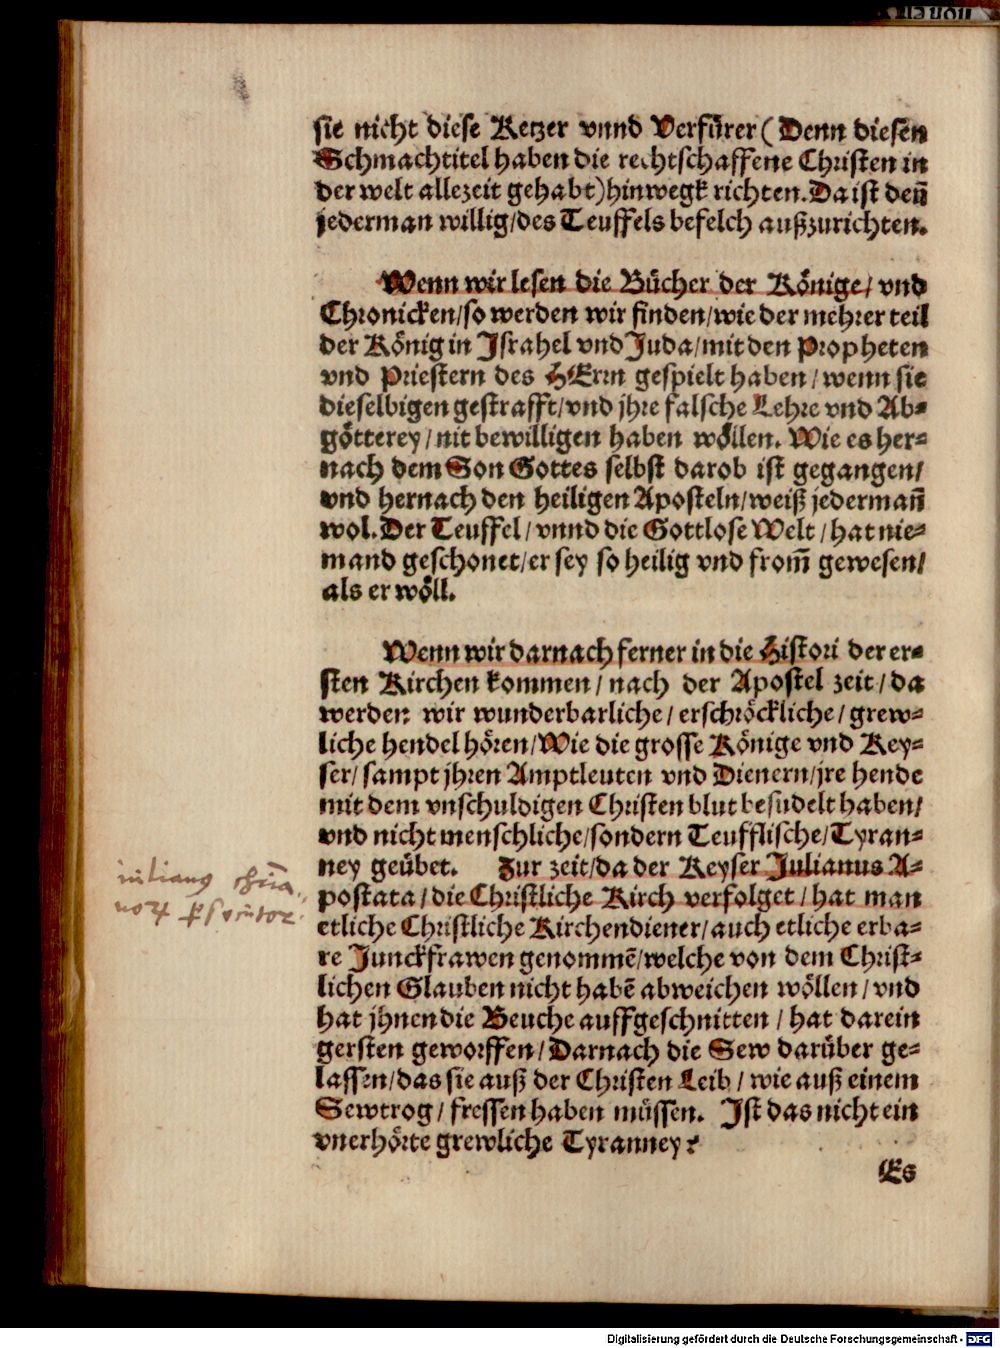 sie nicht diese Ketzer vnnd Verfürer (Denn diesen
Schmachtitel haben die rechtschaffene Christen in
der welt allezeit gehabt) hinwegk richten. Da ist deñ
jederman willig / des Teuffels befelch außzurichten.
Wenn wir lesen die Bücher der Könige / vnd
Chronicken / so werden wir finden / wie der mehrer teil
der König in Jsrahel vnd Juda / mit den Propheten
vnd Priestern des HErrn gespielt haben / wenn sie
dieselbigen gestrafft / vnd jhre falsche Lehre vnd Ab-
götterey / nit bewilligen haben wöllen. Wie es her-
nach dem Son Gottes selbst darob ist gegangen /
vnd hernach den heiligen Aposteln / weiß jedermañ
wol. Der Teuffel / vnnd die Gottlose Welt / hat nie-
mand geschonet / er sey so heilig vnd from̃ gewesen /
als er wöll.
Wenn wir darnach ferner in die Histori der er-
sten Kirchen kommen / nach der Apostel zeit / da
werden wir wunderbarliche / erschröckliche / grew-
liche hendel hören / Wie die grosse Könige vnd Key-
ser / sampt jhren Amptleuten vnd Dienern / jre hende
mit dem vnschuldigen Christen blut besudelt haben /
vnd nicht menschliche / sondern Teufflische / Tyran-
ney geübet. Zur zeit / da der Keyser Julianus A-
postata / die Christliche Kirch verfolget / hat man
etliche Christliche Kirchendiener / auch etliche erba-
re Junckfrawen genommẽ / welche von dem Christ-
lichen Glauben nicht habẽ abweichen wöllen / vnd
hat jhnen die Beuche auffgeschnitten / hat darein
gersten geworffen / Darnach die Sew darüber ge-
lassen / das sie auß der Christen Leib / wie auß einem
Sewtrog / fressen haben müssen. Jst das nicht ein
vnerhörte grewliche Tyranney?
Es
Digitalisierung gefördert durch die Deutsche Forschungsgemeinschaft - DFG